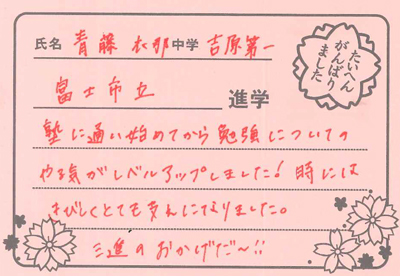 氏名 青藤 衣那 中学 吉原第一
たいへん
がんばり
ました
富士市立 進学
塾に通い始めてから勉強についての
やる気がレベルアップしました! 時には
さびしくとても支えになりました。
三進のおかげだ〜!!